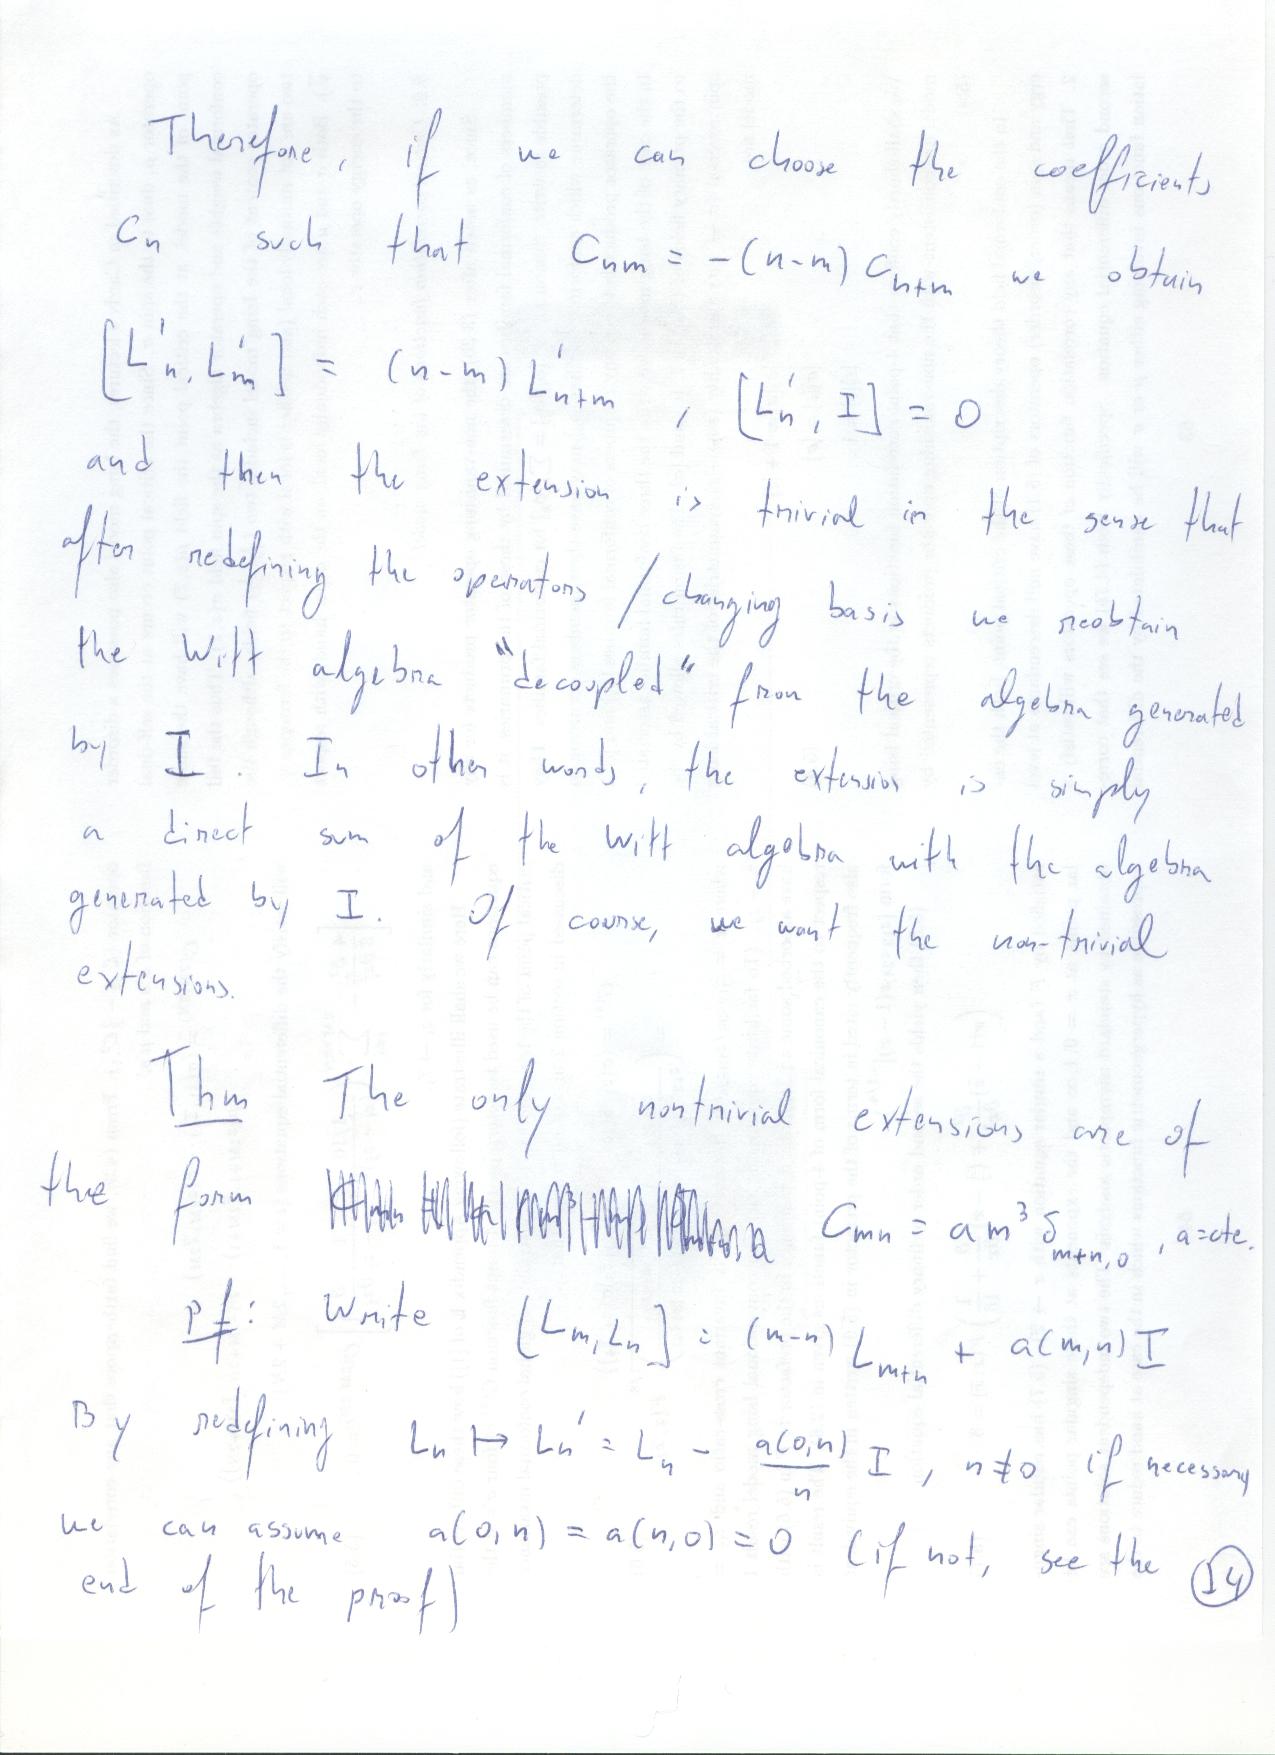 Therefore, if we can choose the coefficients
Cn such that Cnm = -(n-m) Cn+m we obtain
[L'n, L'm] = (n-m) L'n+m , [L'n, I] = 0
and then the extension is trivial in the sense that
after redefining the operators / changing basis we reobtain
the Witt algebra "decoupled" from the algebra generated
by I. In other words, the extension is simply
a direct sum of the Witt algebra with the algebra
generated by I. Of course, we want the non-trivial
extensions.
Thm The only nontrivial extensions are of
the form Cmn = a m³ δm+n,0 , a=cte.
pf: Write [Lm, Ln] = (m-n) Lm+n + a(m,n) I
By redefining Ln ↦ Ln' = Ln - a(0,n)/n I , n≠0 if necessary
we can assume a(0,n) = a(n,0) = 0 (if not, see the
end of the proof)
14